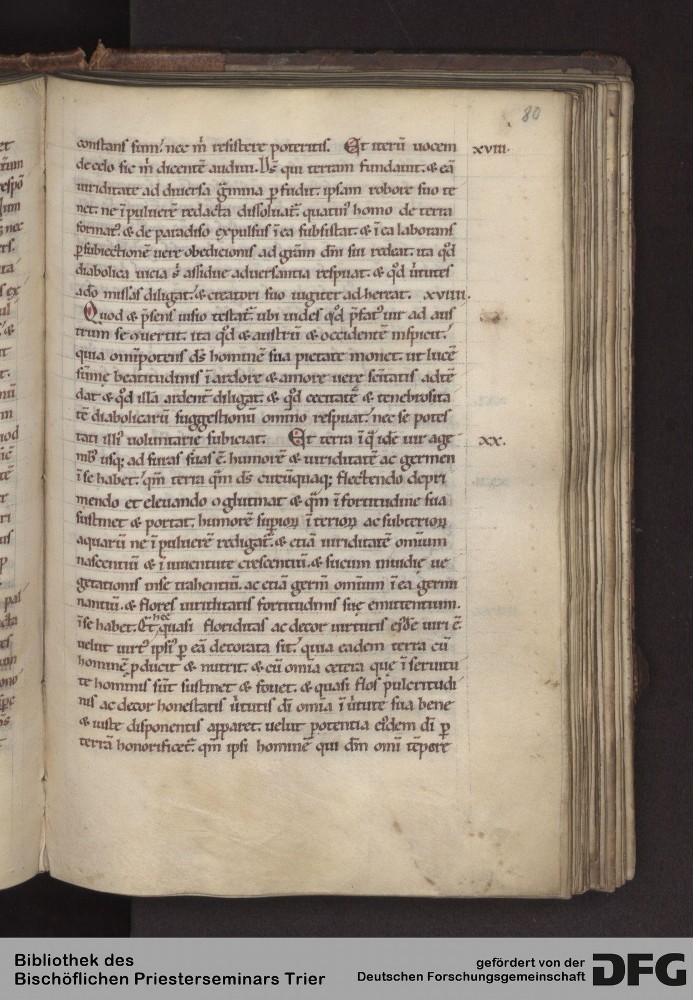 80
constans sum. nec m̄ resistere poteritis. Et iterū uocem xviii.
de celo sic m̄ dicentē audiui. Ds̄ qui terram fundauit. & eā
uiriditate ad diuersa g̃mina ꝑfudit. ipsam robore suo te
net. ne ī puluerē redacta dissoluat᷑. quatin᷒ homo de terra
format᷒ & de paradiso expulsus ī ea subsistat. & ī ea laborans
ꝑ subiectionē uere obedicionis ad grām dn̄i sui redeat. ita qd̄
diabolica uicia s̄ assidue aduersantia respuat. & qd̄ ūtutes
a do missas diligat. & creatori suo iugiter adhereat. xviiii.
Quod & p̄sens uisio testat᷑. ubi uides qd̄ p̄fat᷒ uir ad aus
trum se ꝯuertit. ita qd̄ & austrū & occidentē inspicit.
quia omīpotens ds̄ hominē sua pietate monet. ut lucē
sūmę beatitudinis ī ardore & amore uere sc̄itatis adtē
dat & qd̄ illā ardent᷑ diligat. & qd̄ cecitatē & tenebrosita
tē diabolicarū suggestionū omīno respuat. nec se potes
tati illi᷒ uoluntarie subiciat. Et terra ī q̄ idē uir age xx.
mb᷒ usq; ad suras suas ē. humorē & uiriditatē ac germen
ī se habet. qm̄ terra qm̄ ds̄ cūcūquaq; flectendo depri
mendo et eleuando ꝯglutinat & qm̄ ī fortitudine sua
sustinet & portat. humorē supioꝝ īterioꝝ ac subterioꝝ
aquarū ne ī puluerē redigat᷑. & etiā uiriditatē omnium
nascentiū. & ī iuuentute crescentiū. & sucum
getationis īn se trahentiū. ac etiā germ̄ omīum ī ea germi
nantiū. & flores uiriditatis fortitudinis suę emittentium.
ī se habet. Et hec quasi floriditas ac decor uirtutis ei᷒dē uiri ē.
uelut uirt᷒ ipsi᷒ ꝑ eā decorata sit. quia eadem terra cū
hominē ꝓducit & nutrit. & cū omīa cetera que ī seruitu
te hominis sūt sustinet & fouet. & quasi flos pulcritudi
nis ac decor honestatis ūtutis dī omīa ī ūtute sua bene
& iuste disponentis apparet. uelut potentia ei᷒dem dī ꝑ
terrā honorificet᷑. qm̄ ipsi hominē qui dm̄ omī tēpore
Bibliothek des
Bischöflichen Priesterseminars Trier
gefördert von der
Deutschen Forschungsgemeinschaft
DFG